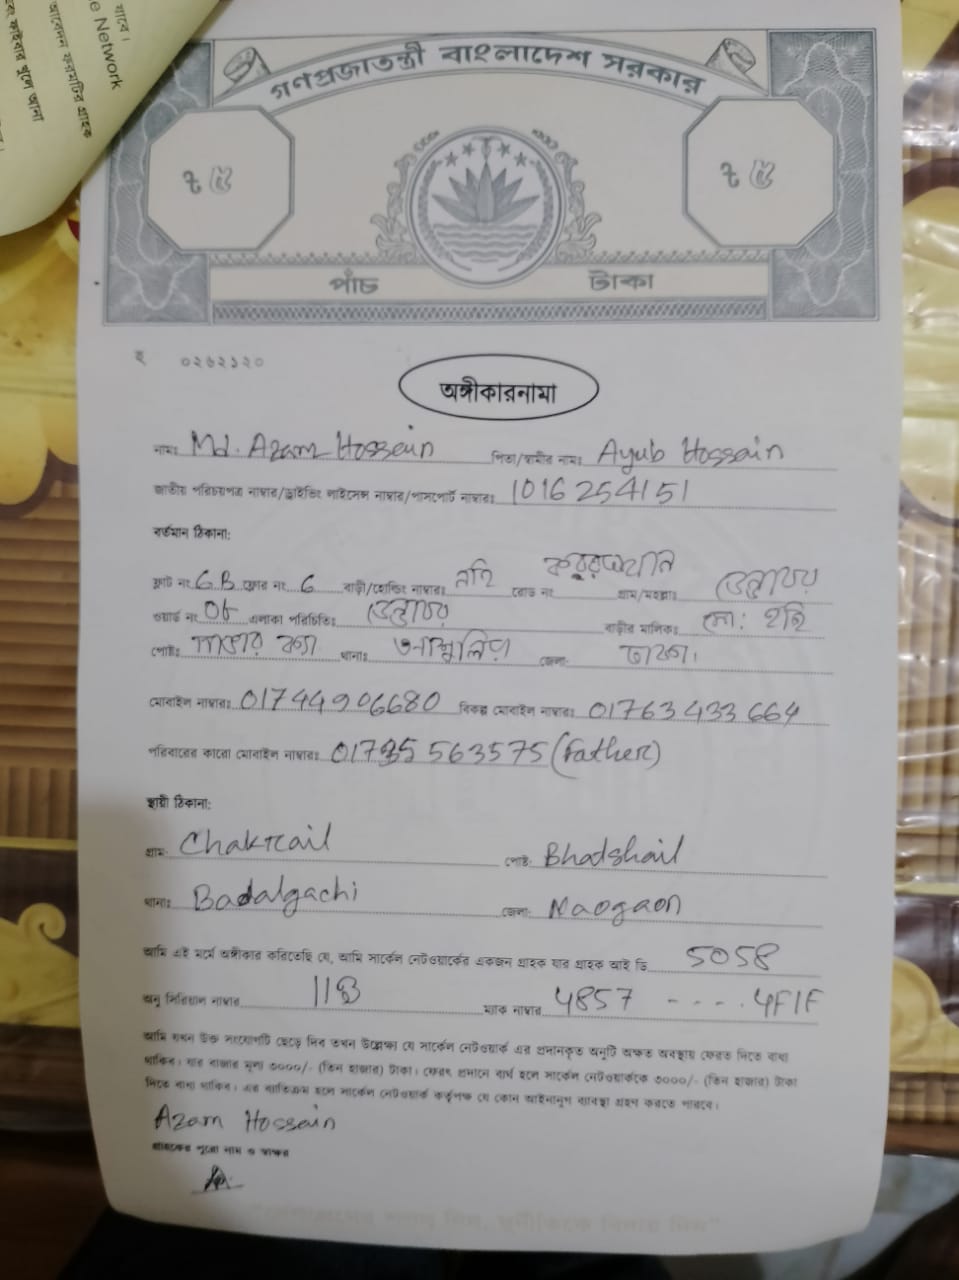 যাবে।
e Network
আবেদন ফরমটির গ্রাহক
এবং ফাইবার খুলে আনা
গণপ্রজাতন্ত্রী বাংলাদেশ সরকার
৳ ৫ ৳ ৫
পাঁচ টাকা
০২৬২১২০
অঙ্গীকারনামা
নামঃ Md. Azam Hossain পিতা/স্বামীর নামঃ Ayub Hossain
জাতীয় পরিচয়পত্র নাম্বার/ড্রাইভিং লাইসেন্স নাম্বার/পাসপোর্ট নাম্বারঃ 1016254151
বর্তমান ঠিকানা:
ফ্লাট নং 6.B ফ্লোর নং 6 বাড়ী/হোল্ডিং নাম্বারঃ রোড নং গ্রাম/মহল্লাঃ
ওয়ার্ড নং 08 এলাকা পরিচিতিঃ বাড়ীর মালিকঃ
পোষ্টঃ থানাঃ আশুলিয়া জেলা: ঢাকা।
মোবাইল নাম্বারঃ 01744906680 বিকল্প মোবাইল নাম্বারঃ 01763433664
পরিবারের কারো মোবাইল নাম্বারঃ 01735563575 (Father)
স্থায়ী ঠিকানা:
গ্রাম: Chakrail পোষ্ট: Bhadshail
থানাঃ Badalgachi জেলা: Naogaon
আমি এই মর্মে অঙ্গীকার করিতেছি যে, আমি সার্কেল নেটওয়ার্কের একজন গ্রাহক যার গ্রাহক আই ডি 5058
অনু সিরিয়াল নাম্বার ম্যাক নাম্বার 4857 - - - - 4F1F
আমি যখন উক্ত সংযোগটি ছেড়ে দিব তখন উল্লেক্ষ্য যে সার্কেল নেটওয়ার্ক এর প্রদানকৃত অনুটি অক্ষত অবস্থায় ফেরত দিতে বাধ্য
থাকিব। যার বাজার মূল্য ৩০০০/- (তিন হাজার) টাকা। ফেরৎ প্রদানে ব্যর্থ হলে সার্কেল নেটওয়ার্ককে ৩০০০/- (তিন হাজার) টাকা
দিতে বাধ্য থাকিব। এর ব্যতিক্রম হলে সার্কেল নেটওয়ার্ক কর্তৃপক্ষ যে কোন আইনানুগ ব্যবস্থা গ্রহণ করতে পারবে।
Azam Hossain
গ্রাহকের পুরো নাম ও স্বাক্ষর